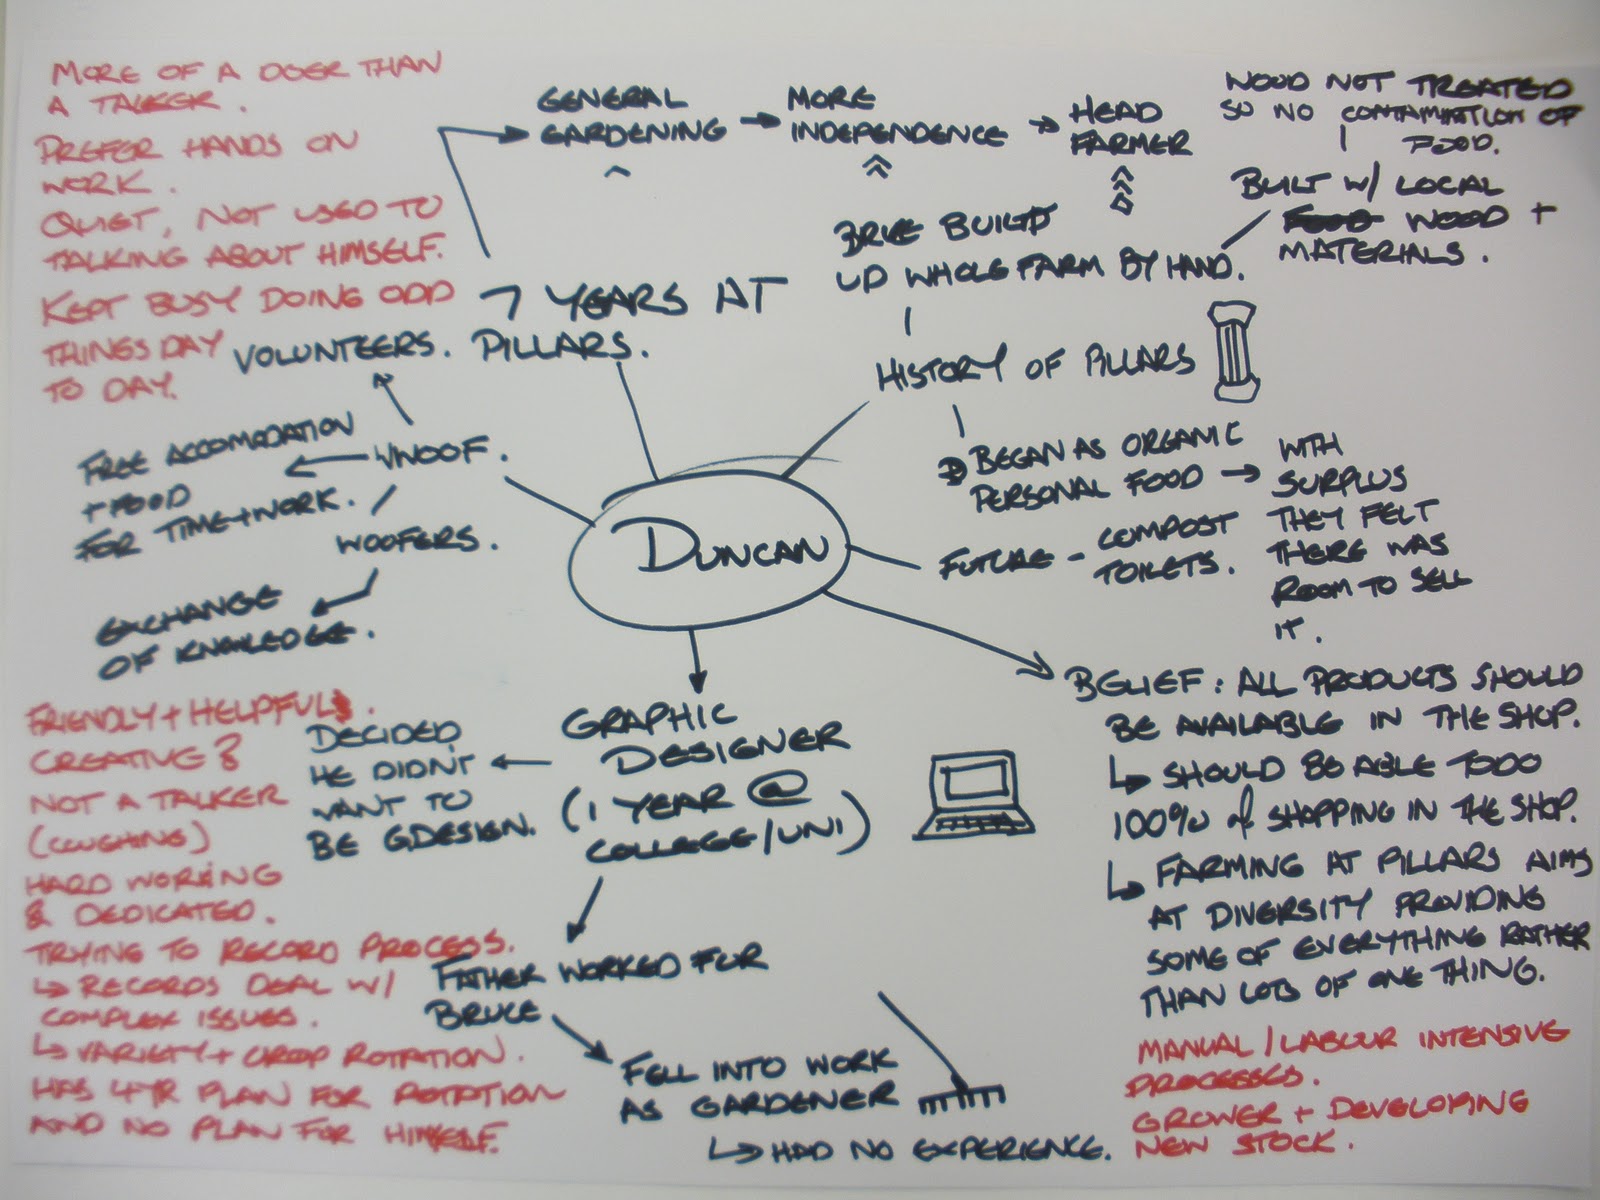 MORE OF A DOER THAN
A TALKER.
PREFER HANDS ON
WORK.
QUIET, NOT USED TO
TALKING ABOUT HIMSELF.
KEPT BUSY DOING ODD
THINGS DAY
TO DAY.
GENERAL
GARDENING
MORE
INDEPENDENCE
HEAD
FARMER
7 YEARS AT
PILLARS.
WOOD NOT TREATED
SO NO CONTAMINATION OF
FOOD.
BUILT W/ LOCAL
WOOD +
MATERIALS.
BUILT
UP WHOLE FARM BY HAND.
HISTORY OF PILLARS
BEGAN AS ORGANIC
PERSONAL FOOD
WITH
SURPLUS
THEY FELT
THERE WAS
ROOM TO SELL
IT.
FUTURE - COMPOST
TOILETS.
VOLUNTEERS.
WWOOF.
FREE ACCOMODATION
+ FOOD
FOR TIME + WORK.
WOOFERS.
EXCHANGE
OF KNOWLEDGE.
DUNCAN
BELIEF: ALL PRODUCTS SHOULD
BE AVAILABLE IN THE SHOP.
SHOULD BE ABLE TO DO
100% of SHOPPING IN THE SHOP.
FARMING AT PILLARS AIMS
AT DIVERSITY PROVIDING
SOME OF EVERYTHING RATHER
THAN LOTS OF ONE THING.
MANUAL / LABOUR INTENSIVE
PROCESSES.
GROWER + DEVELOPING
NEW STOCK.
GRAPHIC
DESIGNER
(1 YEAR @
COLLEGE/UNI)
DECIDED
HE DIDN'T
WANT TO
BE G.DESIGN.
FATHER WORKED FOR
BRUCE
FELL INTO WORK
AS GARDENER
HAD NO EXPERIENCE.
FRIENDLY + HELPFUL.
CREATIVE?
NOT A TALKER
(COUGHING)
HARD WORKING
& DEDICATED.
TRYING TO RECORD PROCESS.
RECORDS DEAL W/
COMPLEX ISSUES.
VARIETY + CROP ROTATION.
HAS 4YR PLAN FOR ROTATION
AND NO PLAN FOR HIMSELF.